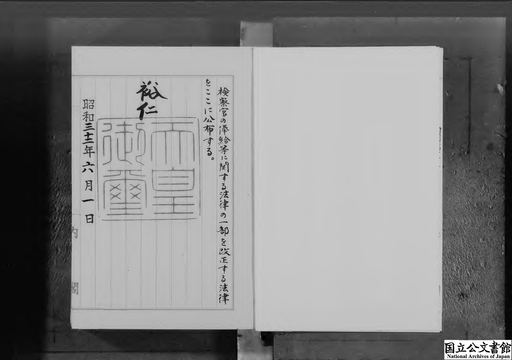 検察官の俸給等に関する法律の一部を改正する法律
をここに公布する。
裕仁
天皇
御璽
昭和三十二年六月一日
内閣
国立公文書館
National Archives of Japan